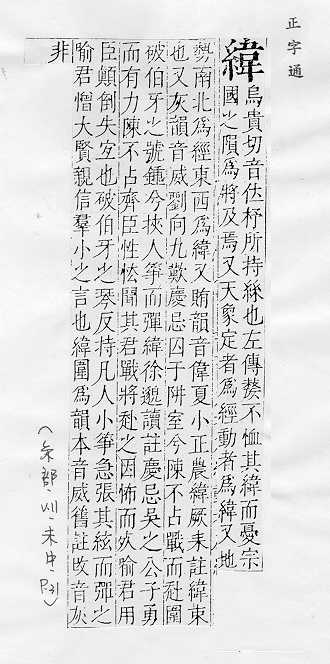 正字通
緯烏貴切音位杼所持絲也左傳嫠不恤其緯而憂宗
國之隕爲將及焉又天象定者爲經動者爲緯又地
勢南北爲經東西爲緯又賄韻音偉夏小正農緯厥耒註緯束
也又灰韻音威劉向九歎慶忌囚于阱室兮陳不占戰而赴圍
破伯牙之號鍾兮挾人箏而彈緯徐邈讀註慶忌吳之公子勇
而有力陳不占齊臣性怯聞其君戰將赴之因怖而死喻君用
臣顛倒失宜也破伯牙之琴反持凡人小箏急張其絃而彈之
喻君憎大賢親信羣小之言也緯圍爲韻本音威舊註改音灰
非
(糸部·未中·P.31)